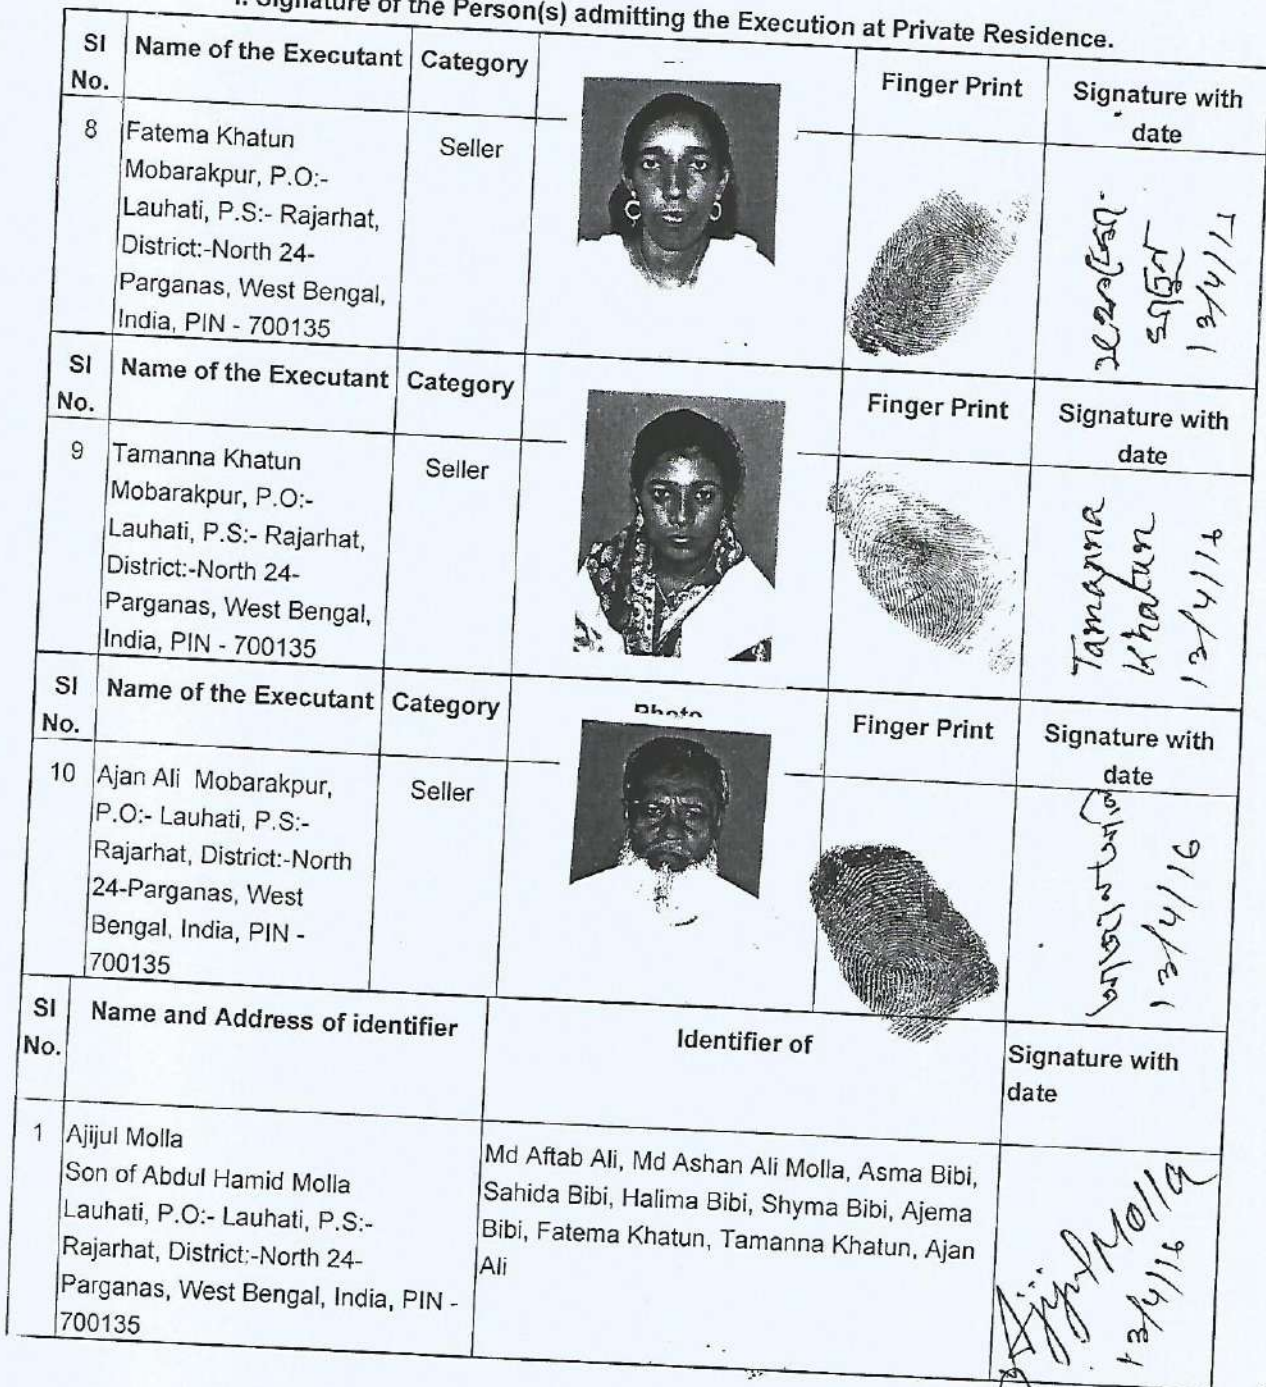 I. Signature of the Person(s) admitting the Execution at Private Residence.
Sl No. Name of the Executant Category Finger Print Signature with date
8 Fatema Khatun Seller
Mobarakpur, P.O:-
Lauhati, P.S:- Rajarhat,
District:-North 24-
Parganas, West Bengal,
India, PIN - 700135
খাতুন
Sl No. Name of the Executant Category Finger Print Signature with date
9 Tamanna Khatun Seller
Mobarakpur, P.O:-
Lauhati, P.S:- Rajarhat,
District:-North 24-
Parganas, West Bengal,
India, PIN - 700135
Tamanna
Khatun
13/4/16
Sl No. Name of the Executant Category Photo Finger Print Signature with date
10 Ajan Ali Mobarakpur, Seller
P.O:- Lauhati, P.S:-
Rajarhat, District:-North
24-Parganas, West
Bengal, India, PIN -
700135
13/4/16
Sl No. Name and Address of identifier Identifier of Signature with date
1 Ajijul Molla
Son of Abdul Hamid Molla
Lauhati, P.O:- Lauhati, P.S:-
Rajarhat, District:-North 24-
Parganas, West Bengal, India, PIN -
700135
Md Aftab Ali, Md Ashan Ali Molla, Asma Bibi,
Sahida Bibi, Halima Bibi, Shyma Bibi, Ajema
Bibi, Fatema Khatun, Tamanna Khatun, Ajan
Ali
Ajijul Molla
13/4/16